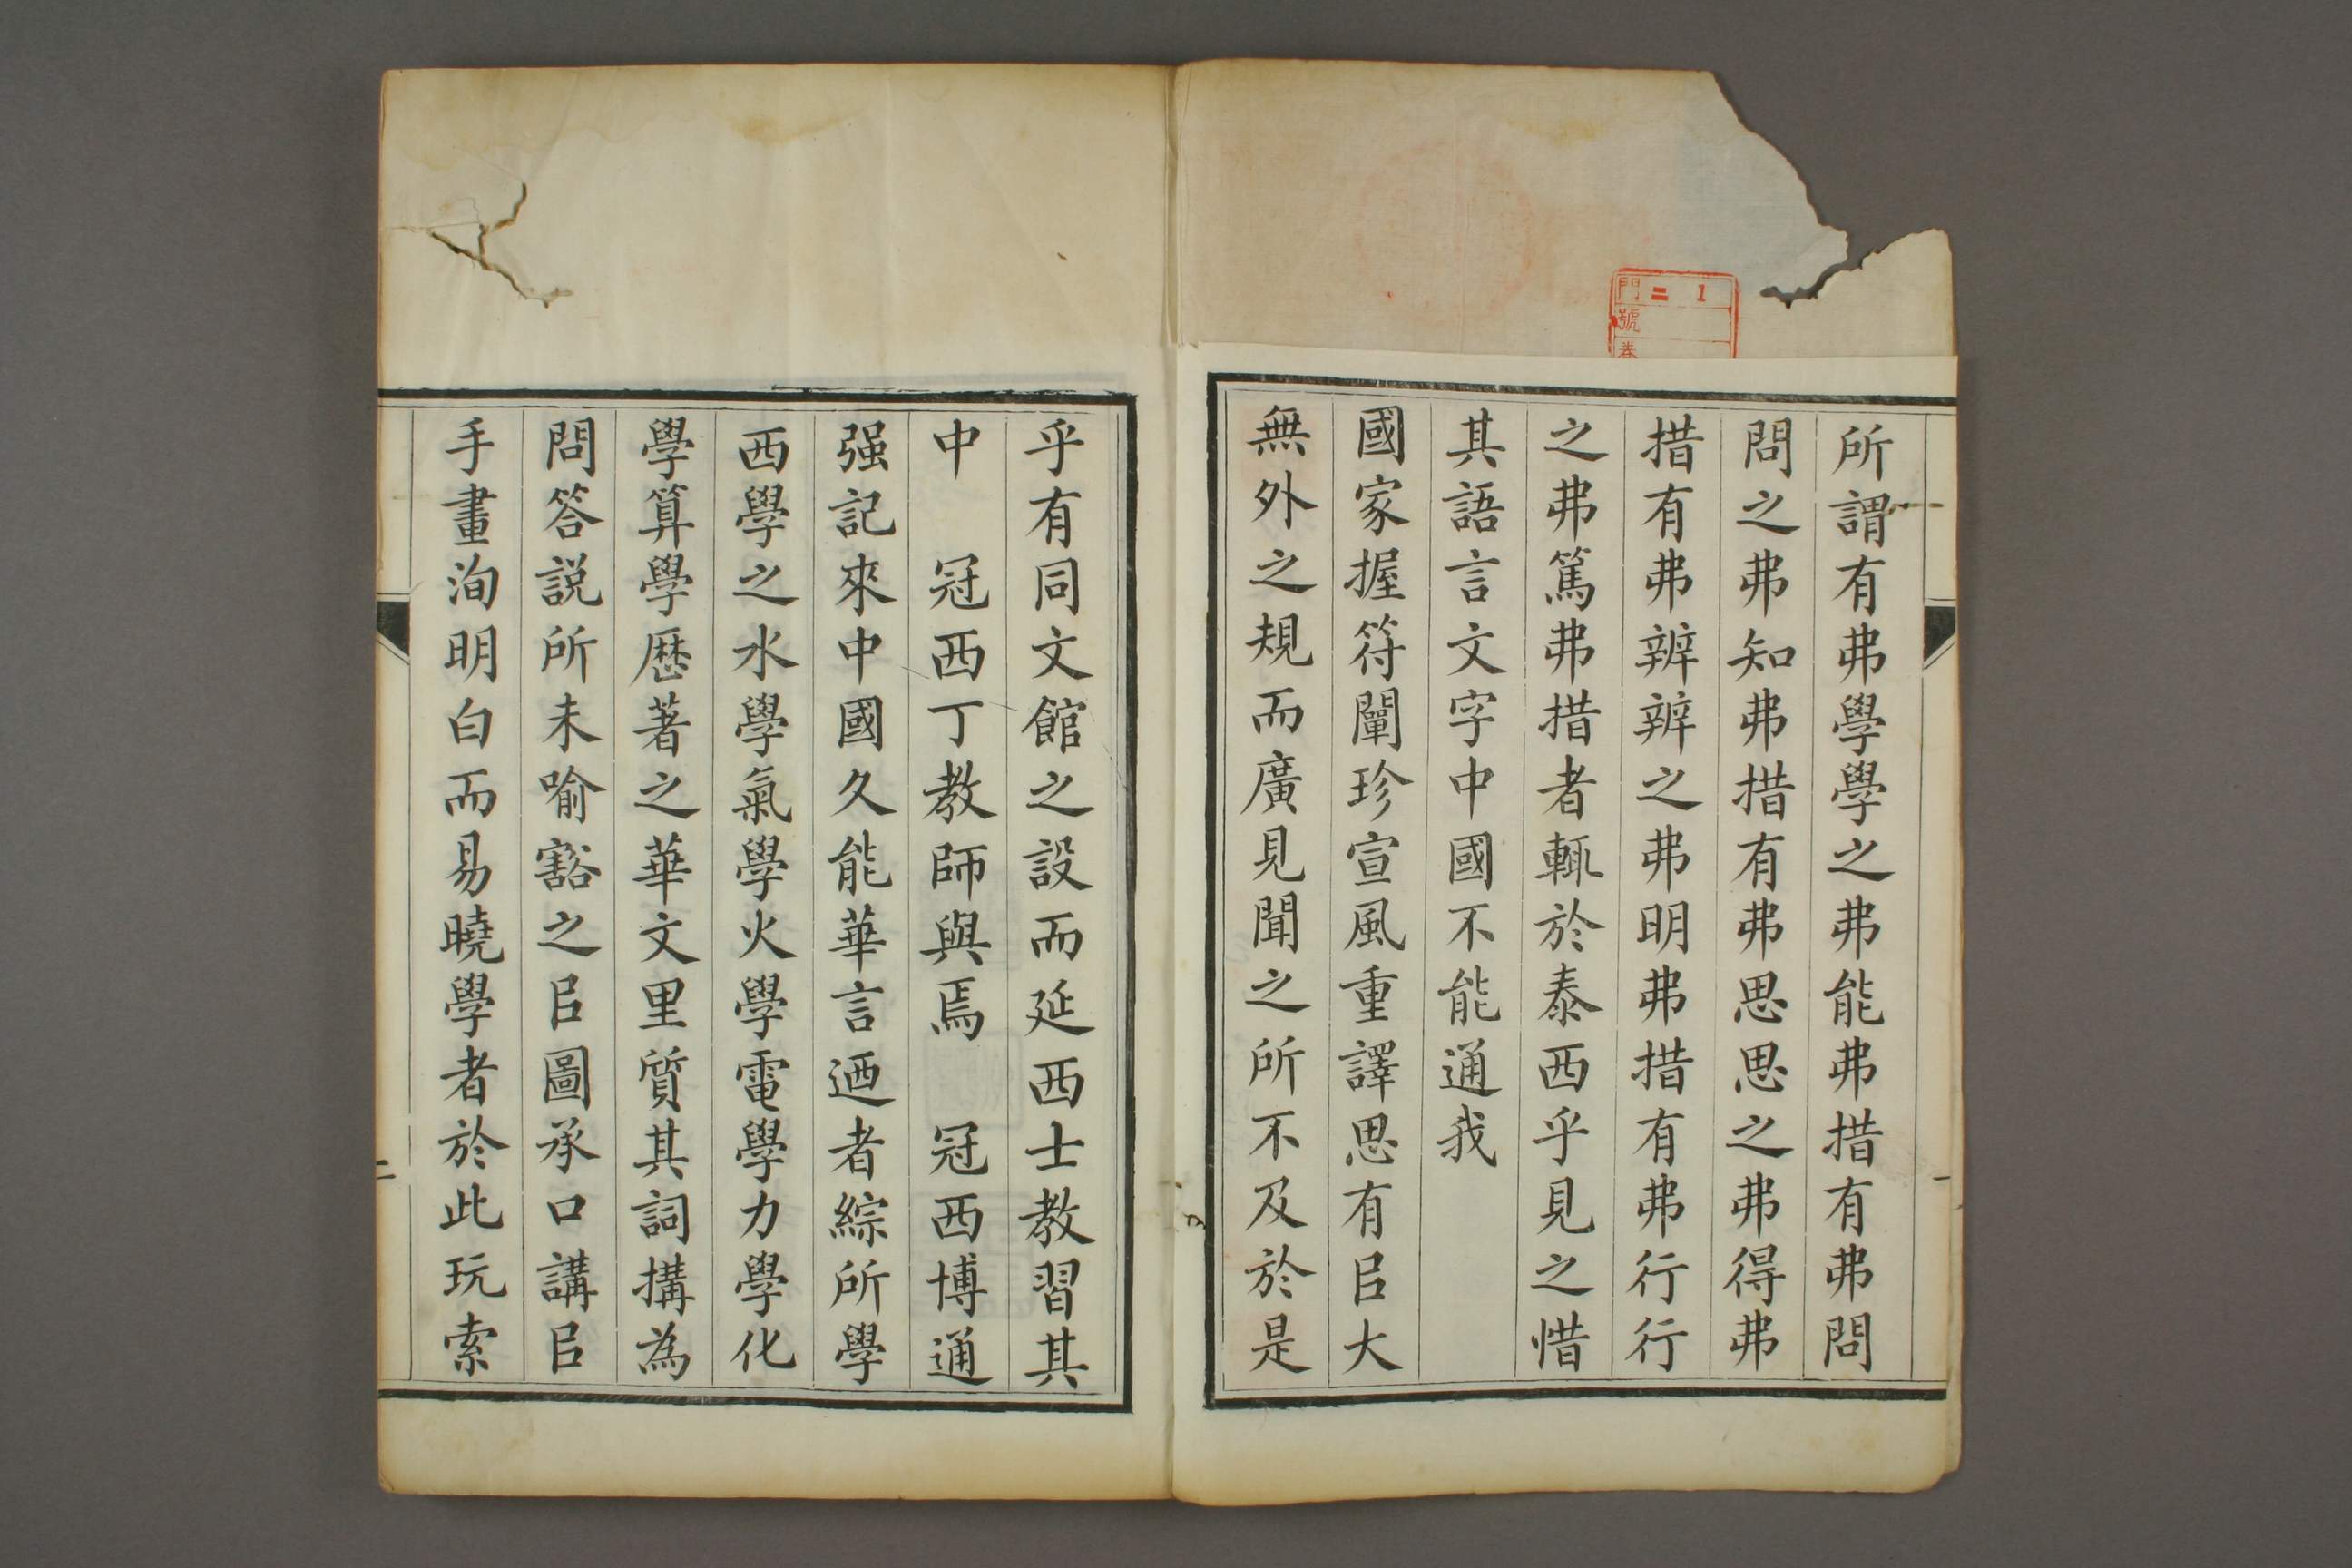 所謂有弗學學之弗能弗措有弗問
問之弗知弗措有弗思思之弗得弗
措有弗辨辨之弗明弗措有弗行行
之弗篤弗措者輒於泰西乎見之惜
其語言文字中國不能通我
國家握符闡珍宣風重譯思有㠯大
無外之規而廣見聞之所不及於是
乎有同文館之設而延西士教習其
中 冠西丁教師與焉 冠西博通
强記來中國久能華言迺者綜所學
西學之水學氣學火學電學力學化
學算學歷著之華文里質其詞搆為
問答説所未喻豁之㠯圖承口講㠯
手畫洵明白而易曉學者於此玩索
門 二 1
號
二
一